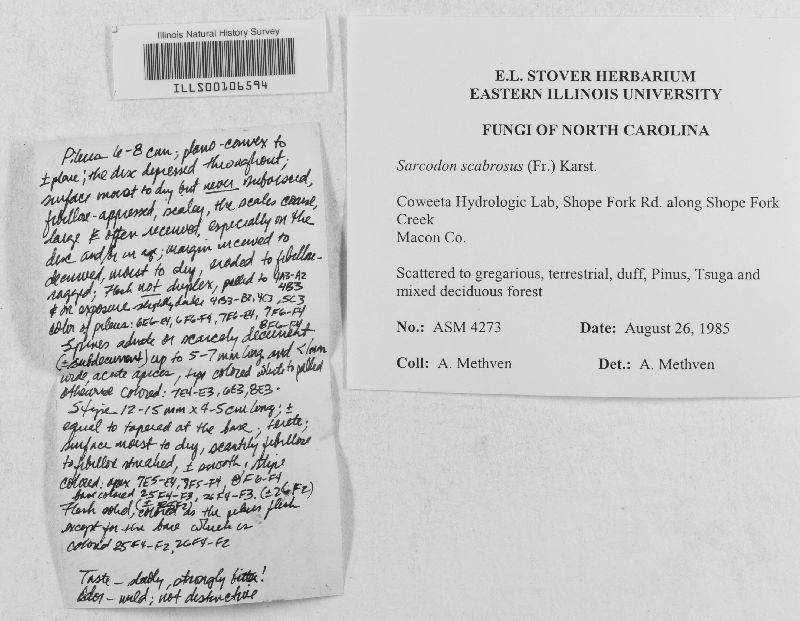 Illinois Natural History Survey
ILLS00106594
Pileus 6-8 cm; plano-convex to
± plane; the disc depressed throughout;
surface moist to dry but never subviscid,
fibrillose-appressed, scaley, the scales coarse,
large & often recurved, especially on the
disc and/or in age; margin incurved to
decurved, moist to dry, eroded to fibrillose-
ragged; Flesh not duplex, pallid to 4A3-A2
4B3
& on exposure slightly darker 4B3-B2, 4C3, 5C3
color of pileus: 6E6-E4, 6F6-F4, 7E6-E4, 7F6-F4
8F6-F4
Spines adnate or scarcely decurrent
(± subdecurrent) up to 5-7 mm long and <1mm
wide, acute apices, tips colored white to pallid
otherwise colored: 7E4-E3, 6E3, 8E3.
Stipe 12-15 mm x 4-5cm long; ±
equal to tapered at the base; terete;
surface moist to dry, scantily fibrillose
to fibrillose streaked, ± smooth; stipe
colored: apex 7E5-E4, 8F5-F4, 8F6-F4
base colored 25F4-F3, 26F4-F3. (±26F2)
Flesh solid, colored as the pileus flesh
except for the base which is
colored 25F4-F2, 26F4-F2
Taste - slowly, strongly bitter!
Odor - mild; not distinctive
E.L. STOVER HERBARIUM
EASTERN ILLINOIS UNIVERSITY
FUNGI OF NORTH CAROLINA
Sarcodon scabrosus (Fr.) Karst.
Coweeta Hydrologic Lab, Shope Fork Rd. along Shope Fork
Creek
Macon Co.
Scattered to gregarious, terrestrial, duff, Pinus, Tsuga and
mixed deciduous forest
No.: ASM 4273 Date: August 26, 1985
Coll: A. Methven Det.: A. Methven